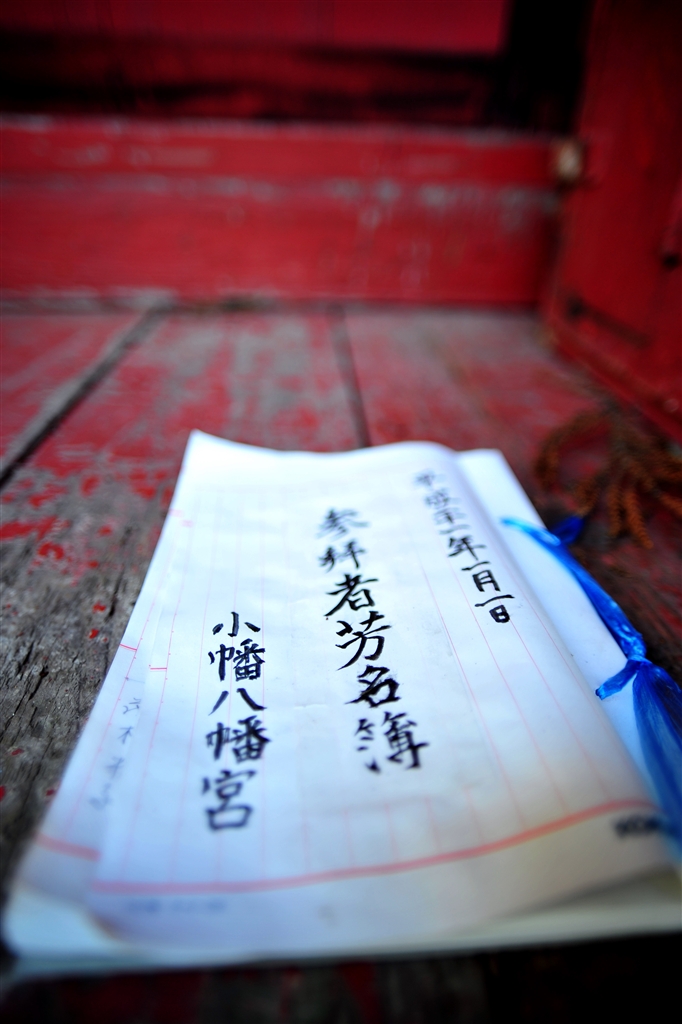 平成二十一年一月一日
参拝者芳名簿
小幡八幡宮